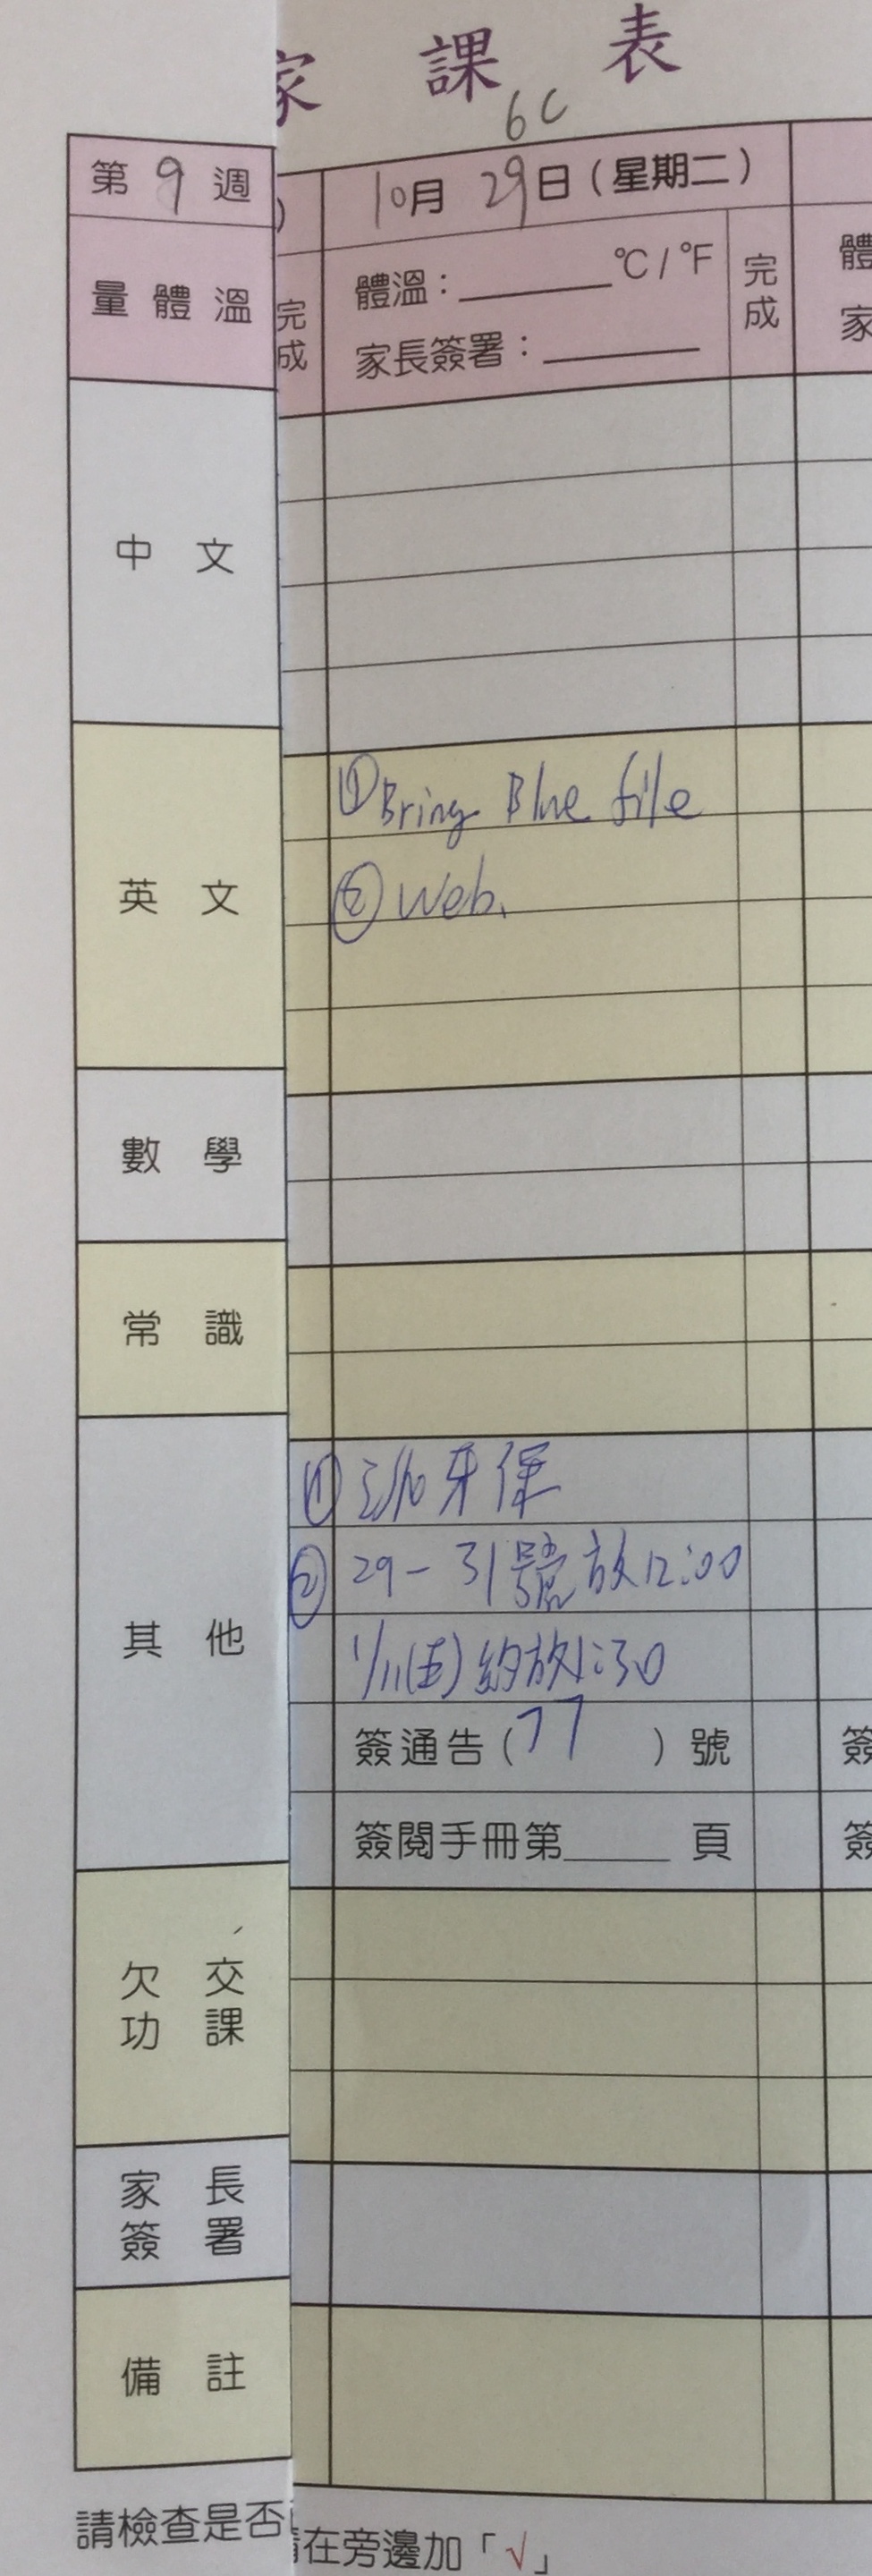 家課表
6C
第9週
10月29日(星期二)
量體溫
完成
體溫：______°C/°F
家長簽署：______
完成
體
家
中文
英文
①Bring Blue file
②Web.
數學
常識
其他
① 31/10 牙保
② 29-31號放12:00
1/11(五)約放1:30
簽通告(77)號
簽
簽閱手冊第______頁
簽
欠交功課
家長簽署
備註
請檢查是否
在旁邊加「√」